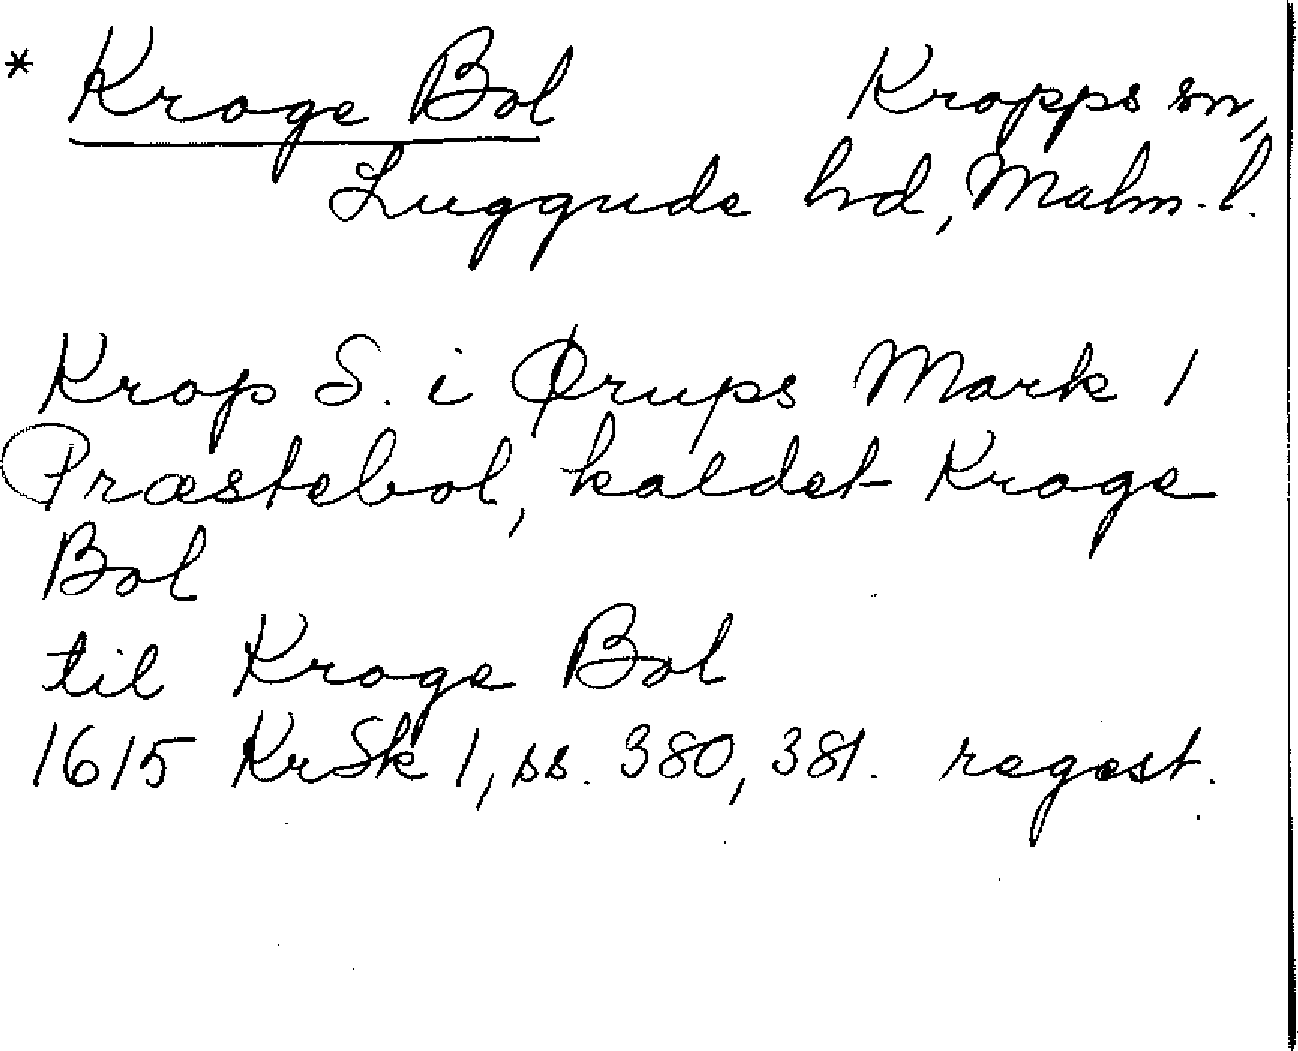 * Kroge Bol Kropps sn,
Luggude hd, Malm. l.
Krop S. i Ørups Mark 1
Præstebol, kaldet Kroge
Bol
til Kroge Bol
1615 KrSk 1, ss. 380, 381. regest.